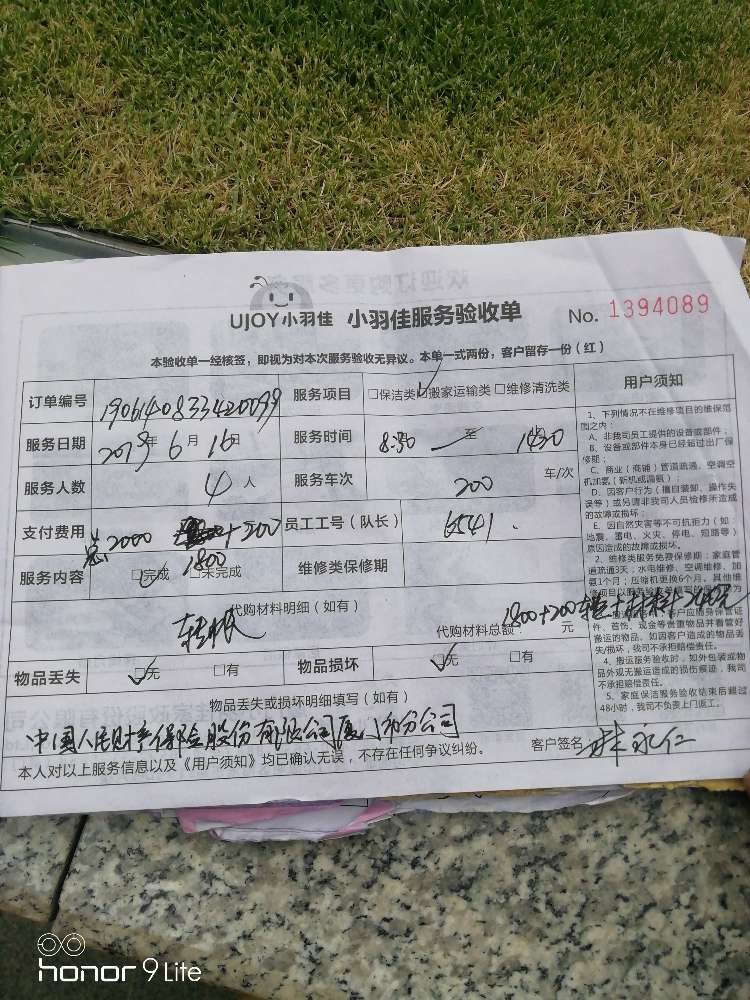 UJOY小羽佳 小羽佳服务验收单 No. 1394089
本验收单一经核签，即视为对本次服务验收无异议。本单一式两份，客户留存一份（红）
订单编号 19061408334200099 服务项目 □保洁类 ☑搬家运输类 □维修清洗类
服务日期 2019年6月16日 服务时间 8:30 至 1430
服务人数 4人 服务车次 200 车/次
支付费用 总2000 1800+200 员工工号（队长） 6541
服务内容 ☑完成 □未完成 维修类保修期
代购材料明细（如有）
转账
代购材料总额： 元
1800+200
物品丢失 ☑无 □有 物品损坏 ☑无 □有
物品丢失或损坏明细填写（如有）
中国人民财产保险股份有限公司厦门市分公司
本人对以上服务信息以及《用户须知》均已确认无误，不存在任何争议纠纷。 客户签名 林永仁
用户须知
1、下列情况不在维修项目的维保范
围之内：
A、非我司员工提供的设备或部件；
B、设备或部件本身已经超过出厂保
修期；
C、商业（商铺）管道疏通、空调空
机加氨（新机或漏氨）；
D、因客户行为（擅自装卸、操作失
误等）或另请非我司人员检修所造成
的故障或损坏；
E、因自然灾害等不可抗拒力（如：
地震、雷电、火灾、停电、短路等）
原因造成的故障或损坏。
2、维修类服务免费保修期：家庭管
道疏通3天；水电维修、空调维修、加
氨1个月；压缩机更换6个月。其他维
件、首饰、现金等贵重物品并看管好
搬运的物品。如因客户造成的物品丢
失/损坏，我司不承担赔偿责任。
4、搬运服务验收时，如外包装或物
品外观无搬运造成的损伤痕迹，我司
不承担赔偿责任。
5、家庭保洁服务验收结束后超过
48小时，我司不负责上门返工。
honor 9 Lite